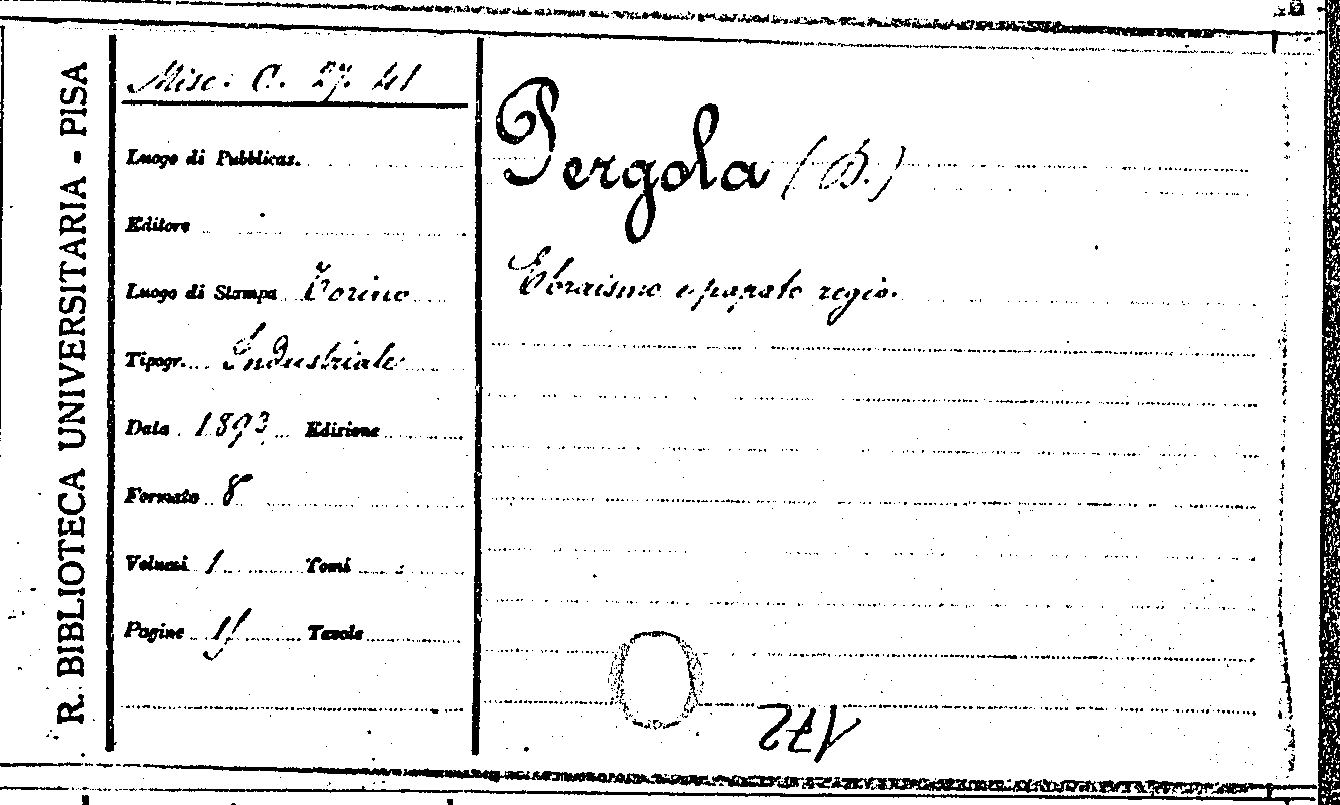 R. BIBLIOTECA UNIVERSITARIA - PISA
Misc. C. 27. 41
Luogo di Pubblicaz.
Editore
Luogo di Stampa Torino
Tipogr. Industriale
Data 1893 Edizione
Formato 8
Volumi 1 Tomi
Pagine Tavole
Pergola (D.)
Ebraismo e papato regio.
172